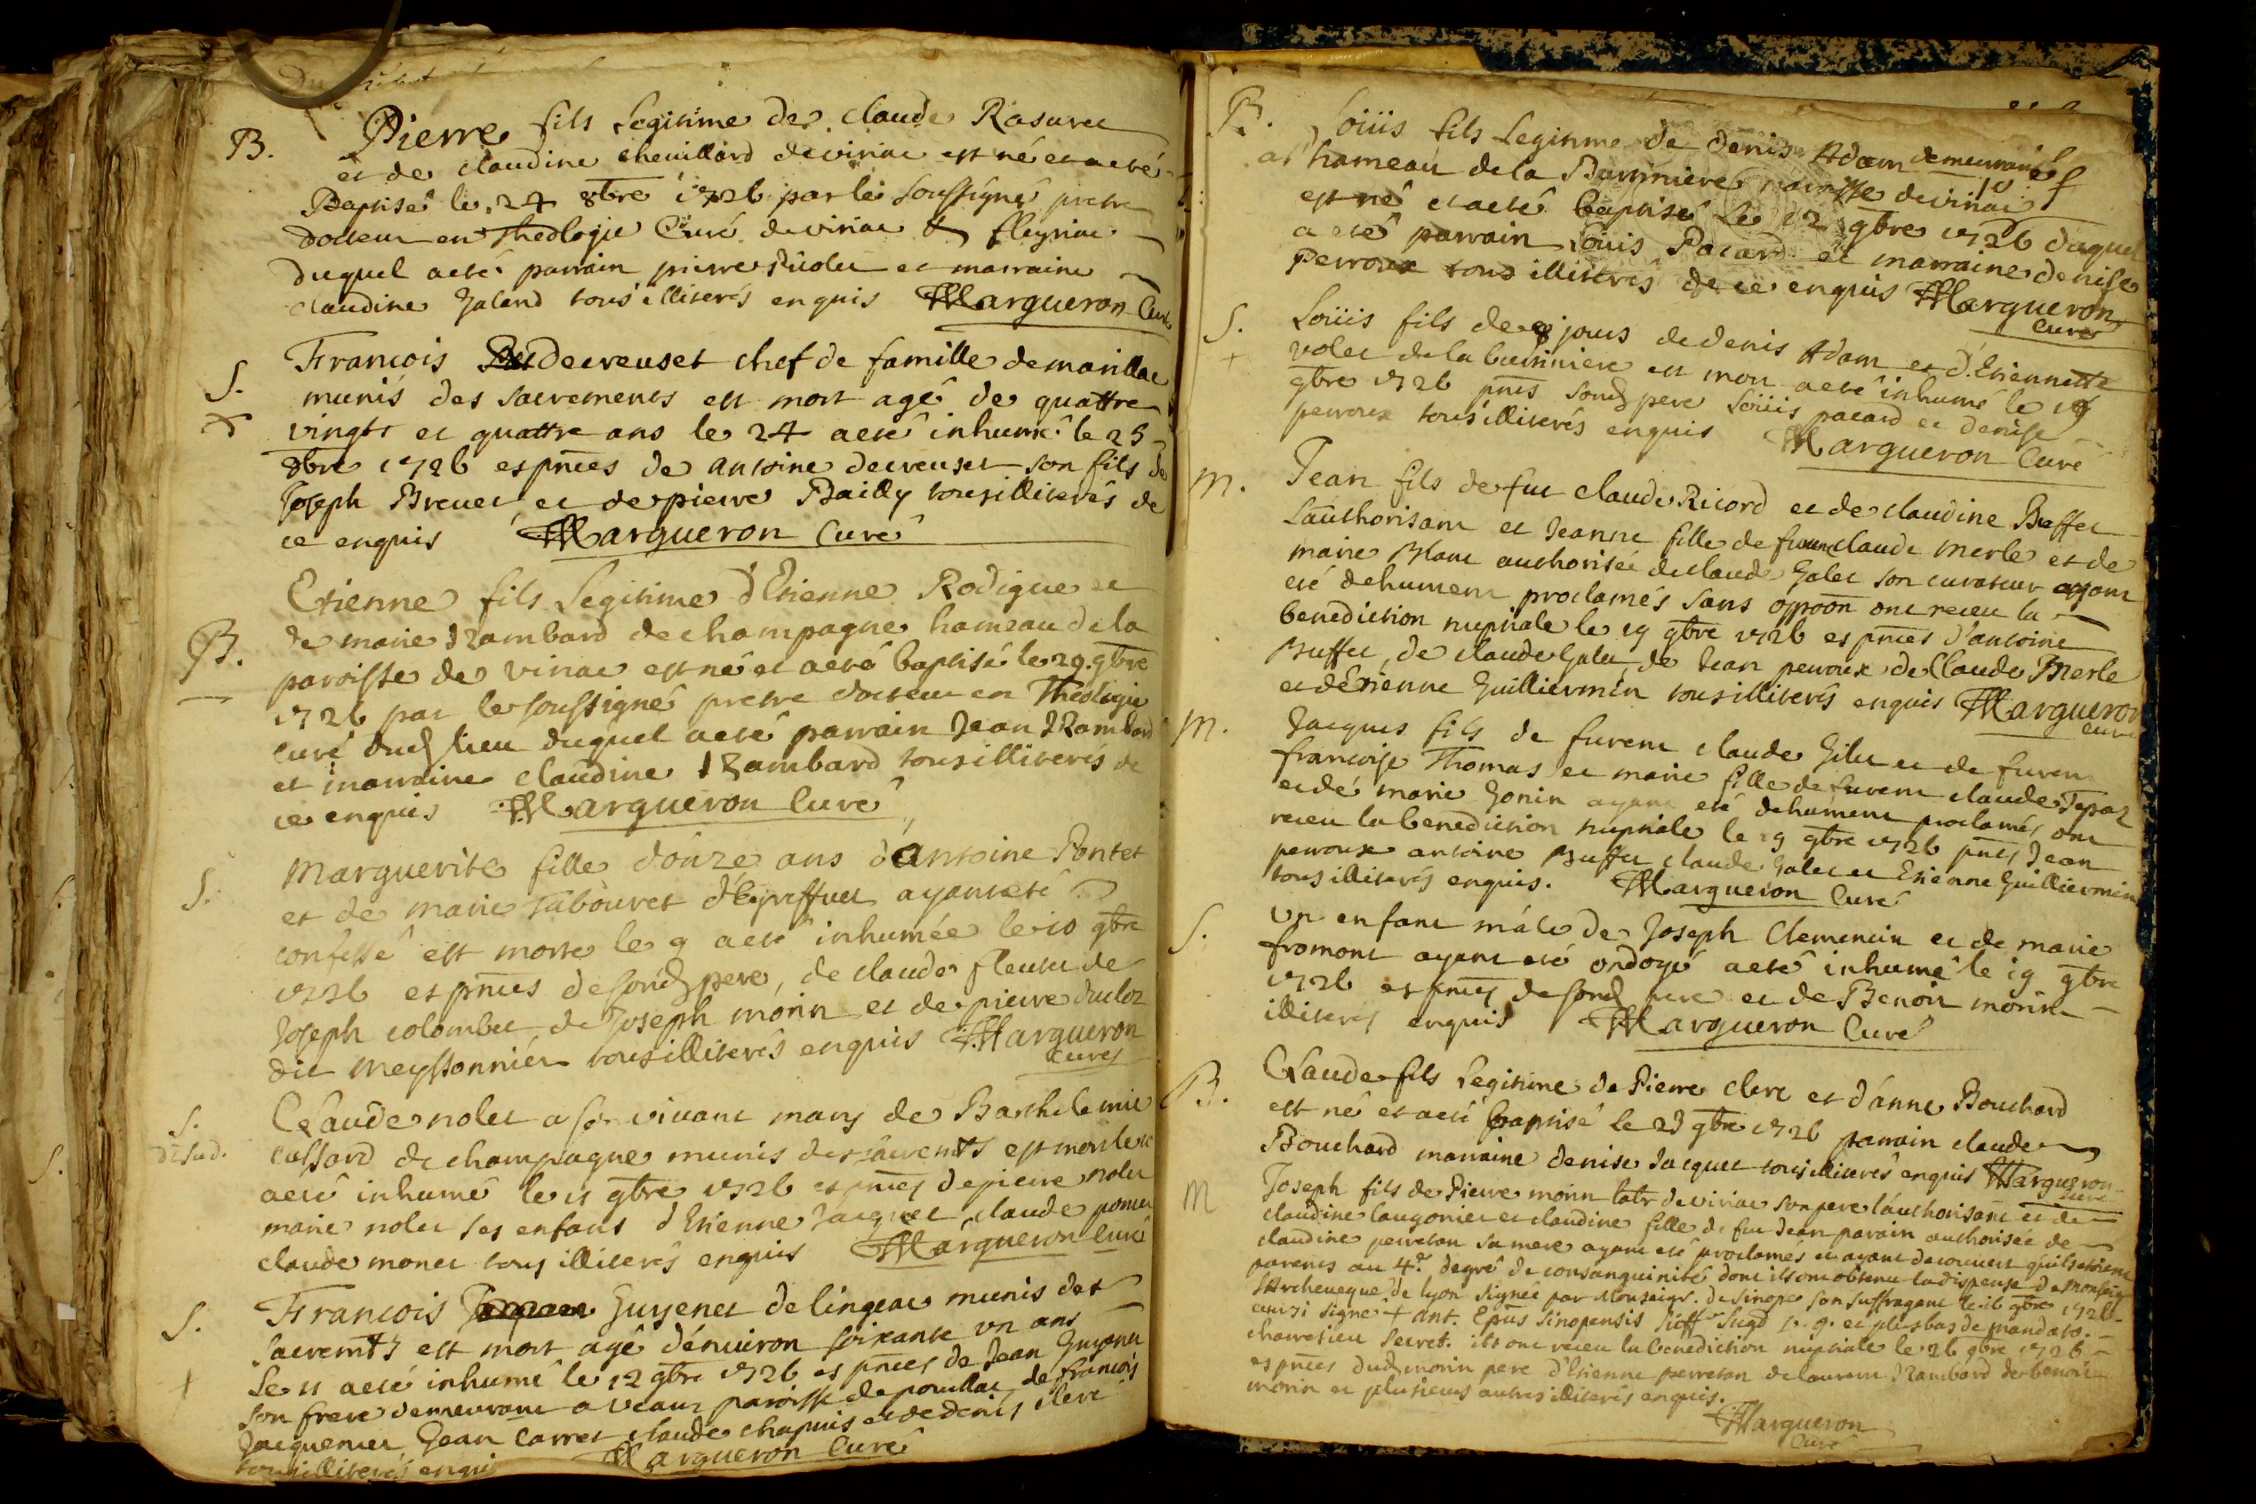 B. Pierre fils Legitime de claude Rasurel
et de claudine chevillard de viriac est né et a eté
Baptisé le 24 8bre 1726 par le soussigné pretre
docteur en Theologie Curé de viriac & fleyriac
duquel a eté parrain pierre et marraine
claudine Galand tous illiterés enquis Margueron Curé
S. Francois decreuset chef de famille de marillac
munis des sacrements est mort agé de quattre
vingts et quattre ans le 24 a eté inhumé le 25
8bre 1726 es pnces de antoine decreuset son fils de
Joseph Brevet et de pierre Bailly tous illiterés de
ce enquis Margueron Curé
Etienne fils Legitime d'Etienne Rodigue et
de marie Rambard de champagne hameau de la
B. paroisse de viriac est né et a eté baptisé le 29 gbre
1726 par le soussigné pretre docteur en Theologie
curé dud lieu duquel a eté parrain Jean Rambard
et marraine claudine Rambard tous illiterés de
ce enquis Margueron Curé
S. Marguerite fille d'onze ans d'antoine Pontet
et de marie Tabouret ayant eté
confessé est morte le 9 a eté inhumée le 10 gbre
1726 es pnces de sond pere, de claude fleuret de
Joseph colombet de Joseph morin et de pierre ducloz
dit Meyssonnier tous illiterés enquis Margueron
Curé
S. Claude nolet vivant mary de Barthelemie
cassard de champagne munis des sacremts est mort le
a eté inhumé le 11 gbre 1726 es pnces de pierre nolet
marie nolet ses enfans d'Etienne Jacquet claude
claude monet tous illiterés enquis Margueron curé
S. Francois Guyenet de lingeac munis des
sacremts est mort agé d'environ soixante un ans
le 11 a eté inhumé le 12 gbre 1726 es pnces de Jean Guyenet
son frere demeurant a veaux paroisse de de francois
Jacquemet Jean Carret claude chapuis et de denis clerc
tous illiterés enquis Margueron Curé
B. Loüis fils Legitime de denis Adam demeurant
a l'hameau de la paroisse de viriac
est né et a eté baptisé le 12 gbre 1726 duquel
a eté parrain Louis Pacard et marraine denise
Perroux tous illiterés de ce enquis Margueron
Curé
S. Loüis fils de jours de denis Adam et d'Etiennette
volet de la est mort a eté inhumé le 19
gbre 1726 pnts sond pere Loüis pacard et denise
perroux tous illiterés enquis Margueron Curé
M. Jean fils de feu claude Ricord et de claudine Buffet
L'authorisant et Jeanne fille de claude Merle et de
marie Blanc authorisée de claude Galet son curateur ayant
eté dehument proclamés sans oppoon ont receu la
benediction nuptiale le 19 gbre 1726 es pnces d'antoine
Buffet, de claude Galet, de Jean perroux de Claude Merle
et d'Etienne Guilliermin tous illiterés enquis Margueron
Curé
M. Jacques fils de furent claude Gilet et de furent
francoise Thomas et marie fille de furent claude Tepaz
et de marie Gonin ayant eté dehument proclamés ont
receu la benediction nuptiale le 19 gbre 1726 pnts Jean
perroux antoine Buffet claude Galet et Etienne Guilliermin
tous illiterés enquis. Margueron Curé
S. un enfant mâle de Joseph Clemencin et de marie
fromont ayant eté ondoyé a eté inhumé le 19 gbre
1726 es pnces de sond pere et de Benoit morin
illiterés enquis Margueron Curé
B. Claude fils Legitime de Pierre Clerc et d'anne Bouchard
est né et a eté baptisé le 23 gbre 1726 parrain claude
Bouchard marraine denise Jacquet tous illiterés enquis Margueron
Curé
M Joseph fils de Pierre morin labr de viriac son pere l'authorisant et de
claudine laugonier et claudine fille de feu Jean parain authorisée de
claudine perretan sa mere ayant eté proclamés et ayant decouvert qu'ils etoient
parents au 4e degré de consanguinité dont ils ont obtenu la dispense de Monseigr
l'Archeveque de lyon signée par Monseigr. de Sinope son suffragant le 16 gbre 1726
ainsi signé + Ant. Epus Sinopensis et plus bas de mandato.
secret. ils ont receu la benediction nuptiale le 26 gbre 1726
es pnces dud morin pere d'Etienne perretan de laurent Rambard de benoit
morin et plusieurs autres illiterés enquis.
Margueron
Curé